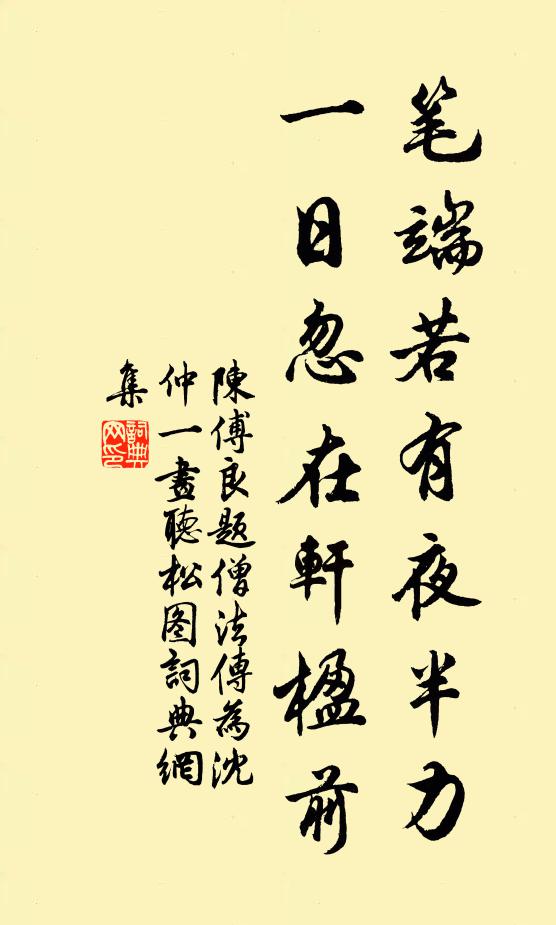 笔端若有夜半力
一日忽在軒楹前
陳傅良題僧法傳為沈
仲一畫聽松图詞典網
集
詞典网印